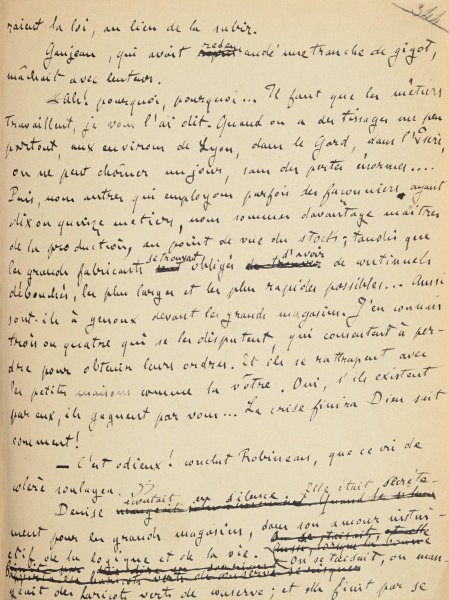 344
raient la loi, au lieu de la subir.
Gaujean, qui avait redemandé une tranche de gigot,
mâchait avec lenteur.
— Ah! pourquoi, pourquoi... Il faut que les métiers
travaillent, je vous l'ai dit. Quand on a des tissages un peu
partout, aux environs de Lyon, dans le Gard, dans l'Isère,
on ne peut chômer un jour, sans des pertes énormes....
Puis, nous autres qui employons parfois des façonniers ayant
dix ou quinze métiers, nous sommes davantage maîtres
de la production, au point de vue du stock; tandis que
les grands fabricants se trouvent obligés d'avoir de continuels
débouchés, les plus larges et les plus rapides possibles... Aussi
sont-ils à genoux devant les grands magasins. J'en connais
trois ou quatre qui se les disputent, qui consentent à per-
dre pour obtenir leurs ordres. Et ils se rattrapent avec
les petites maisons comme la vôtre. Oui, s'ils existent
par eux, ils gagnent par vous... La crise finira Dieu sait
comment!
— C'est odieux! conclut Robineau, que ce cri de
colère soulagea.
Denise écoutait en silence. Elle était secrète-
ment pour les grands magasins, dans son amour instin-
ctif de la logique et de la vie. On se taisait, on man-
geait des haricots verts de conserve; et elle finit par se